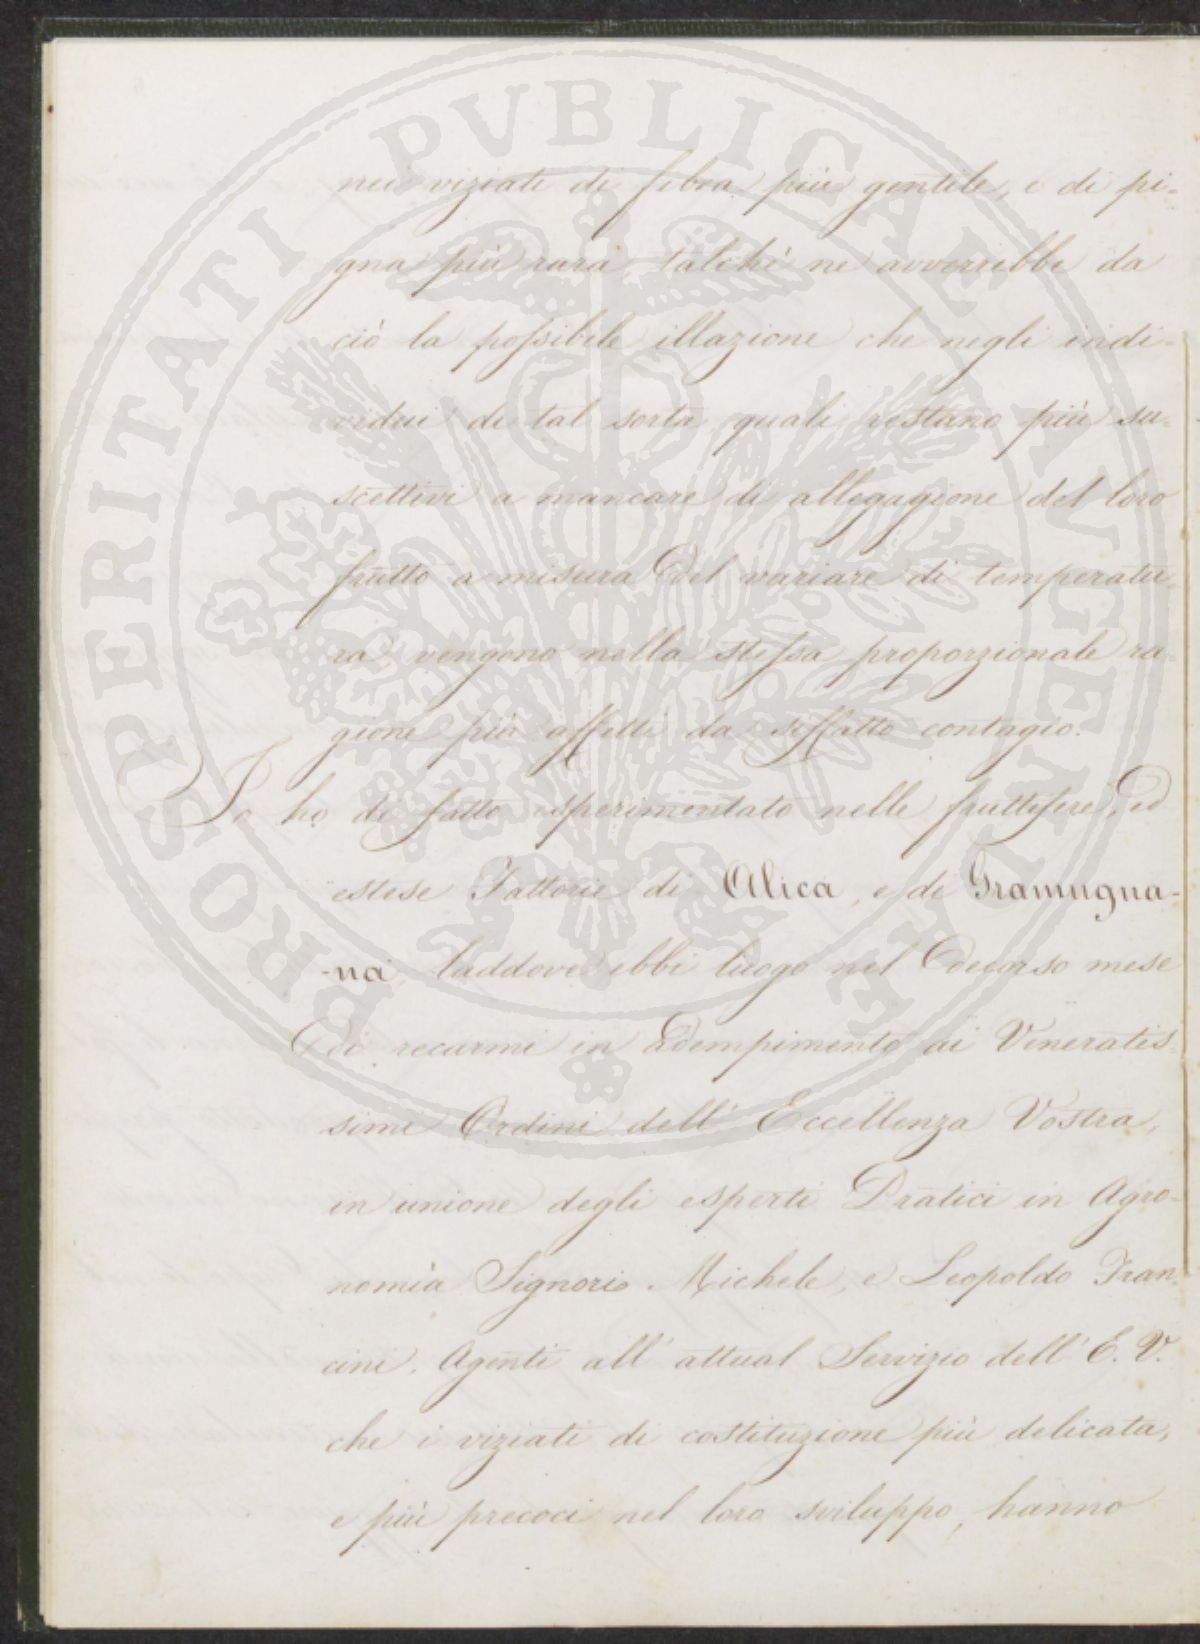 nei viziati di fibra più gentile, e di pi-
gna più rara, talchè ne avverrebbe da
ciò la possibile illazione che negli indi-
vidui di tal sorta quali restano più su-
scettivi a mancare di allegagione del loro
frutto a misura del variare di temperatu
ra vengono nella stessa proporzionale ra-
gione più affetti da siffatto contagio.
Io ho di fatto esperimentato nelle fruttifere, ed
estese Fattorie di Alica, e di Gramugna-
-na, laddove ebbi luogo nel decorso mese
di recarmi in adempimento ai Veneratis-
simi Ordini dell' Eccellenza Vostra,
in unione degli esperti Pratici in Agro-
nomìa Signori Michele, e Leopoldo Fran
cini. Agenti all' attual Servizio dell' E. V.
che i viziati di costituzione più delicata,
e più precoci nel loro sviluppo, hanno
PROSPERITATI PVBLICAE AVGENDAE